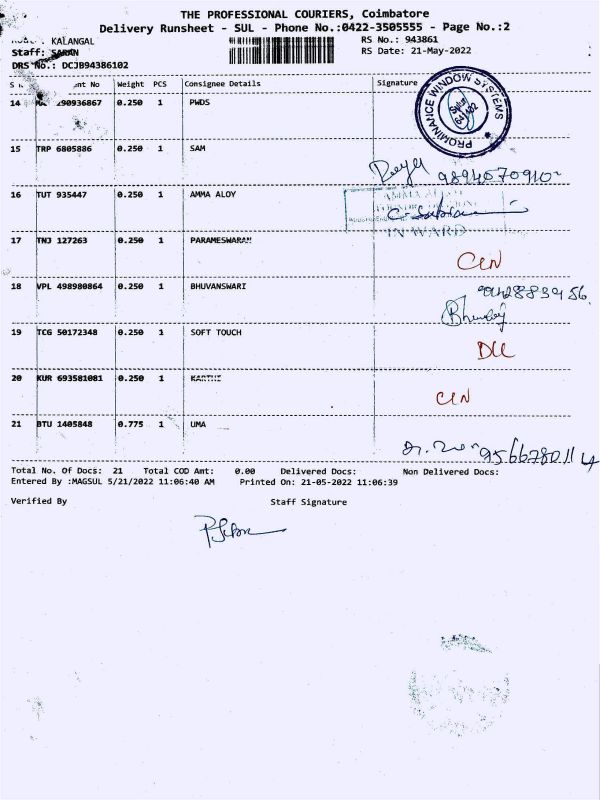 THE PROFESSIONAL COURIERS, Coimbatore
Delivery Runsheet - SUL - Phone No.:0422-3505555 - Page No.:2
KALANGAL RS No.: 943861
Staff: SARAN RS Date: 21-May-2022
DRS No.: DCJB94386102
nt No Weight PCS Consignee Details Signature
14 290936867 0.250 1 PWDS
PROMINANCE WINDOW SYSTEMS
15 TRP 6805886 0.250 1 SAM
9894070910
16 TUT 935447 0.250 1 AMMA ALOY
INWARD
17 TNJ 127263 0.250 1 PARAMESWARAN
CLN
18 VPL 498980864 0.250 1 BHUVANSWARI
19 TCG 50172348 0.250 1 SOFT TOUCH
DLL
20 KUR 693581081 0.250 1 KARTHI
CLN
21 BTU 1405848 0.775 1 UMA
Total No. Of Docs: 21 Total COD Amt: 0.00 Delivered Docs: Non Delivered Docs:
Entered By :MAGSUL 5/21/2022 11:06:40 AM Printed On: 21-05-2022 11:06:39
Verified By Staff Signature